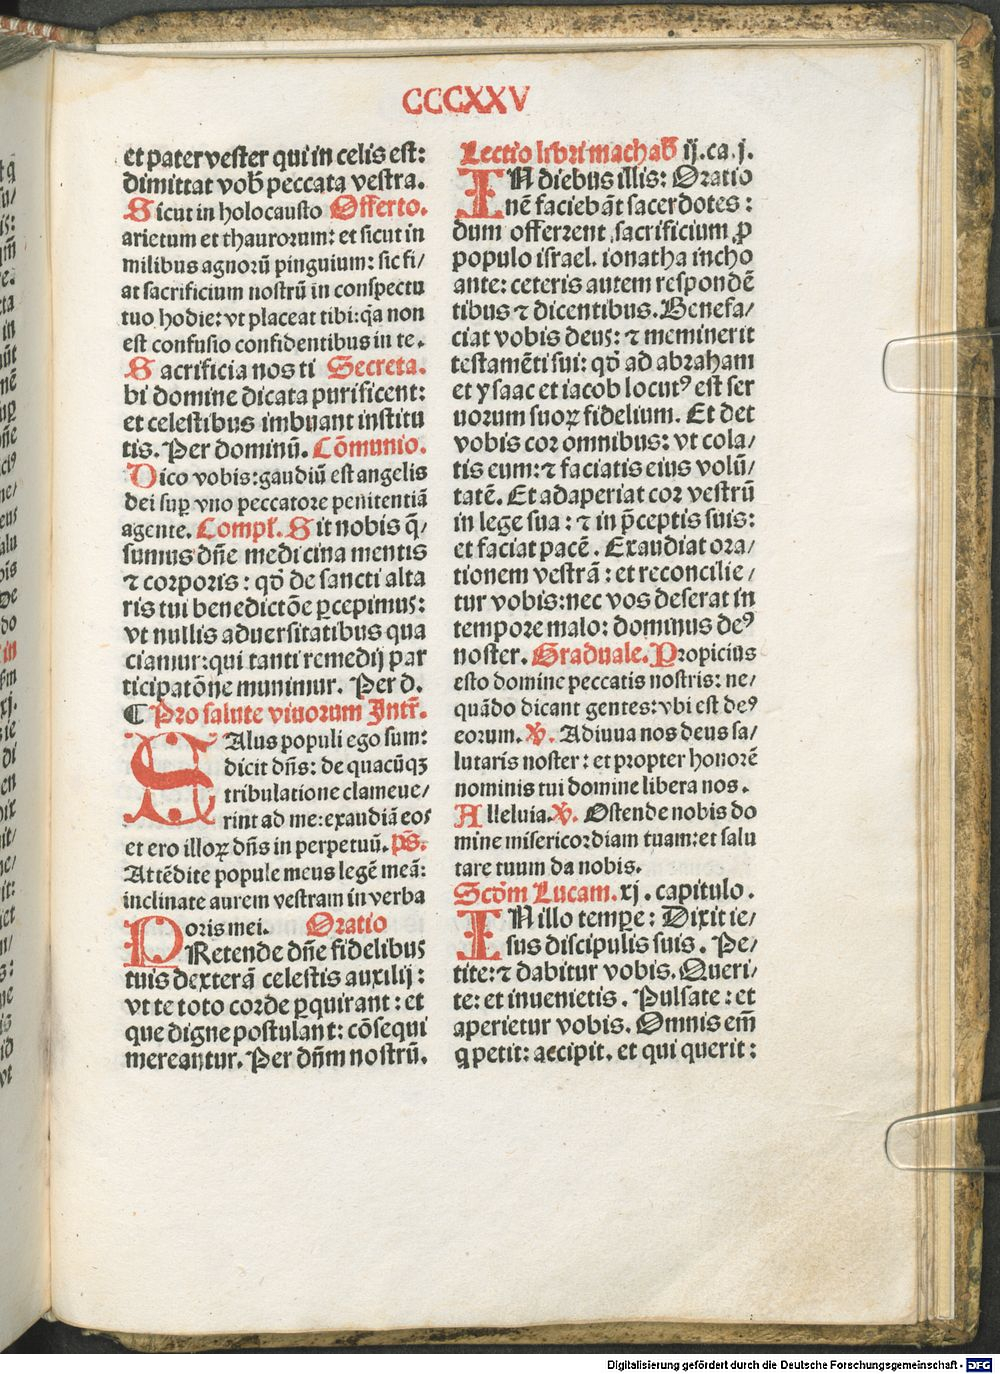 CCCXXV
et pater vester qui in celis est:
dimittat vob̄ peccata vestra.
Sicut in holocausto Offerto.
arietum et thaurorum: et sicut in
milibus agnorū pinguium: sic fi/
at sacrificium nostrū in conspectu
tuo hodie: vt placeat tibi: q̄a non
est confusio confidentibus in te.
Sacrificia nos ti Secreta.
bi domine dicata purificent:
et celestibus imbuant institu
tis. Per dominū. Cōmunio.
Dico vobis: gaudiū est angelis
dei suꝑ vno peccatore penitentiā
agente. Compl̄. Sit nobis q̄/
sumus dn̄e medicina mentis
⁊ corporis: qd̄ de sancti alta
ris tui benedictōe ꝑcepimus:
vt nullis aduersitatibus qua
ciamur: qui tanti remedij par
ticipatōne munimur. Per d.
¶ Pro salute viuorum Intr̄.
SAlus populi ego sum:
dicit dn̄s: de quacūqꝫ
tribulatione clameue/
rint ad me: exaudiā eos
et ero illoꝝ dn̄s in perpetuū. ps̄.
Attēdite popule meus legē meā:
inclinate aurem vestram in verba
oris mei. Oratio
PRetende dn̄e fidelibus
tuis dexterā celestis auxilij:
vt te toto corde ꝑquirant: et
que digne postulant: cōsequi
mereantur. Per dn̄m nostrū.
Lectio libri machab̄ ij. ca. j.
IN diebus illis: Oratio
nē faciebāt sacerdotes:
dum offerrent sacrificium ꝓ
populo israel. ionatha incho
ante: ceteris autem respondē
tibus ⁊ dicentibus. Benefa/
ciat vobis deus: ⁊ meminerit
testamēti sui: qd̄ ad abraham
et ysaac et iacob locutꝰ est ser
uorum suoꝝ fidelium. Et det
vobis cor omnibus: vt cola/
tis eum: ⁊ faciatis eius volū/
tatē. Et adaperiat cor vestrū
in lege sua: ⁊ in p̄ceptis suis:
et faciat pacē. Exaudiat ora/
tionem vestrā: et reconcilie/
tur vobis: nec vos deserat in
tempore malo: dominus deꝰ
noster. Graduale. Propicius
esto domine peccatis nostris: ne/
quādo dicant gentes: vbi est deꝰ
eorum. ℣. Adiuua nos deus sa/
lutaris noster: et propter honorē
nominis tui domine libera nos.
Alleluia. ℣. Ostende nobis do
mine misericordiam tuam: et salu
tare tuum da nobis.
Scd̄m Lucam. xj. capitulo.
IN illo tempe: Dixit ie/
sus discipulis suis. Pe/
tite: ⁊ dabitur vobis. Queri/
te: et inuenietis. Pulsate: et
aperietur vobis. Omnis em̄
q petit: accipit. et qui querit:
Digitalisierung gefördert durch die Deutsche Forschungsgemeinschaft - DFG